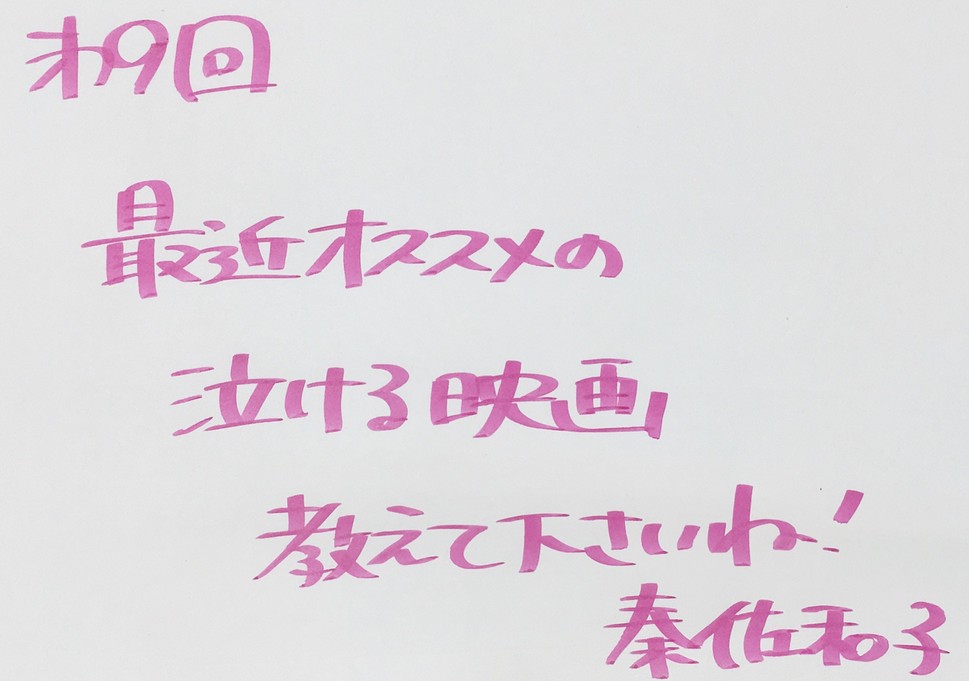 才9回
最近オススメの
泣ける映画
教えて下さいね!
秦佐和子